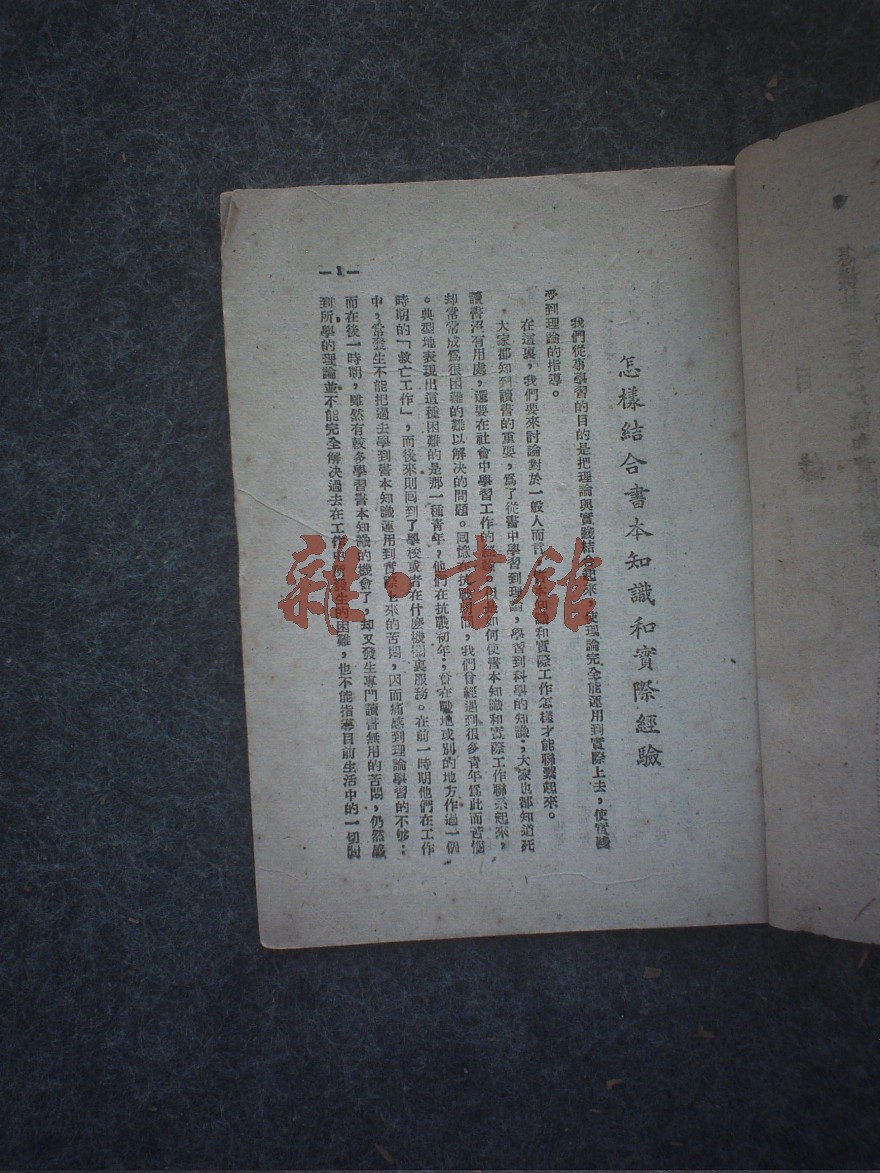 怎樣結合書本知識和實際經驗
我們從事學習的目的是把理論與實踐結合起來,使理論完全能運用到實際上去,使實踐
受到理論的指導。
在這裏,我們要來討論對於一般人而言,書本知識和實際工作怎樣才能聯繫起來。
大家都知到讀書的重要,爲了從書中學習到理論,學習到科學的知識;大家也都知道死
讀書沒有用處,還要在社會中學習工作的如何使書本知識和實際工作聯系起來,
却常常成爲很困難的難以解決的問題。回憶抗戰期間,我們曾經遇到很多青年爲此而苦惱
。典型地表現出這種困難的是那一種青年,他們在抗戰初年,曾在戰地或別的地方作過一個
時期的「救亡工作」,而後來則回到了學校或者在什麼機構裏服務。在前一時期他們在工作
中,常發生不能把過去學到書本知識運用到實際上來的苦悶,因而痛感到理論學習的不够;
而在後一時期,雖然有較多學習書本知識的機會了,却又發生專門讀書無用的苦悶,仍然感
到所學的理論並不能完全解決過去在工作中所發生的困難,也不能指導目前生活中的一切問
—1—
雜·書館
目
錄